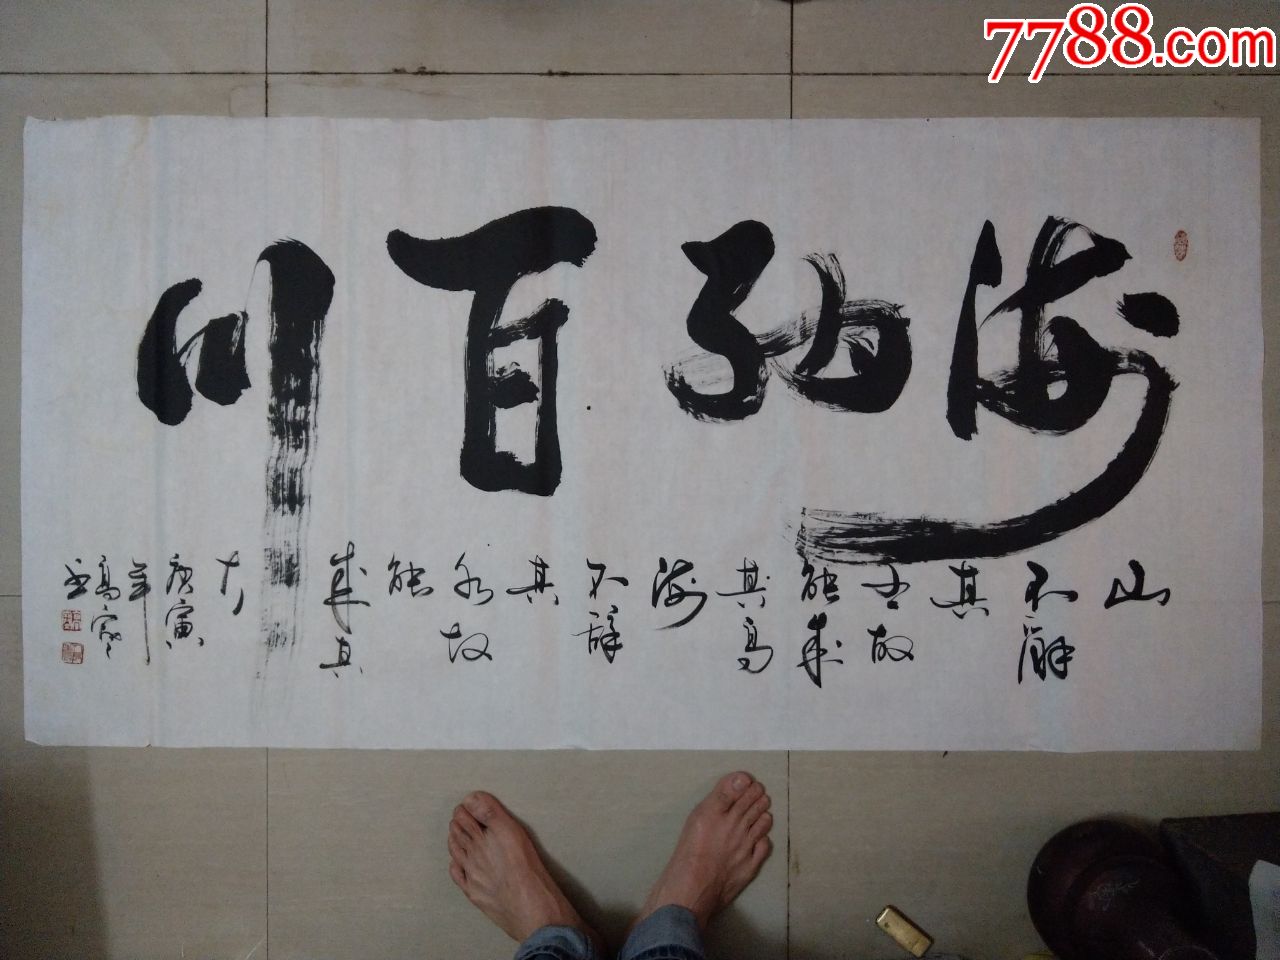 7788.com
海纳百川
山
不解
其
土故
能成
其高
海
不辞
其
水故
能
成其
大
庚寅
年
高家
书